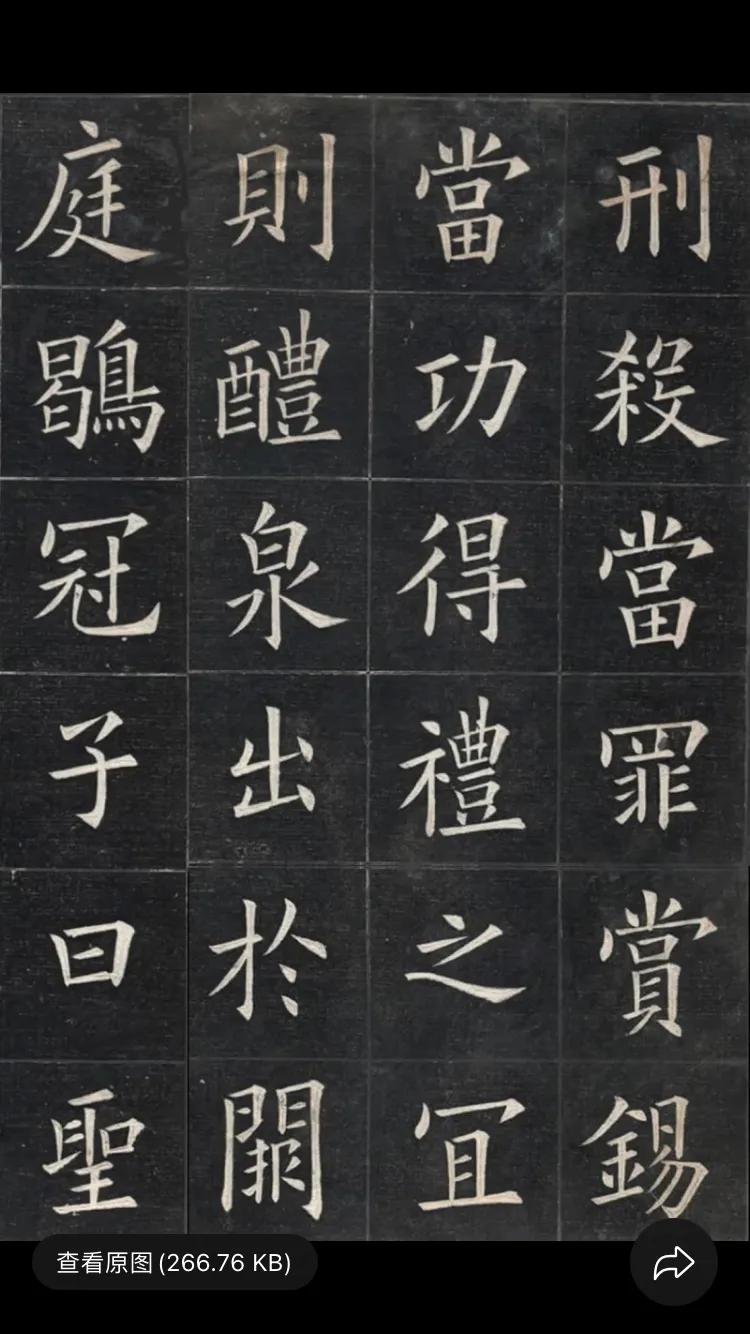 刑殺當罪賞錫
當功得禮之冝
則醴泉出於闕
庭鶡冠子曰聖
查看原图(266.76 KB)